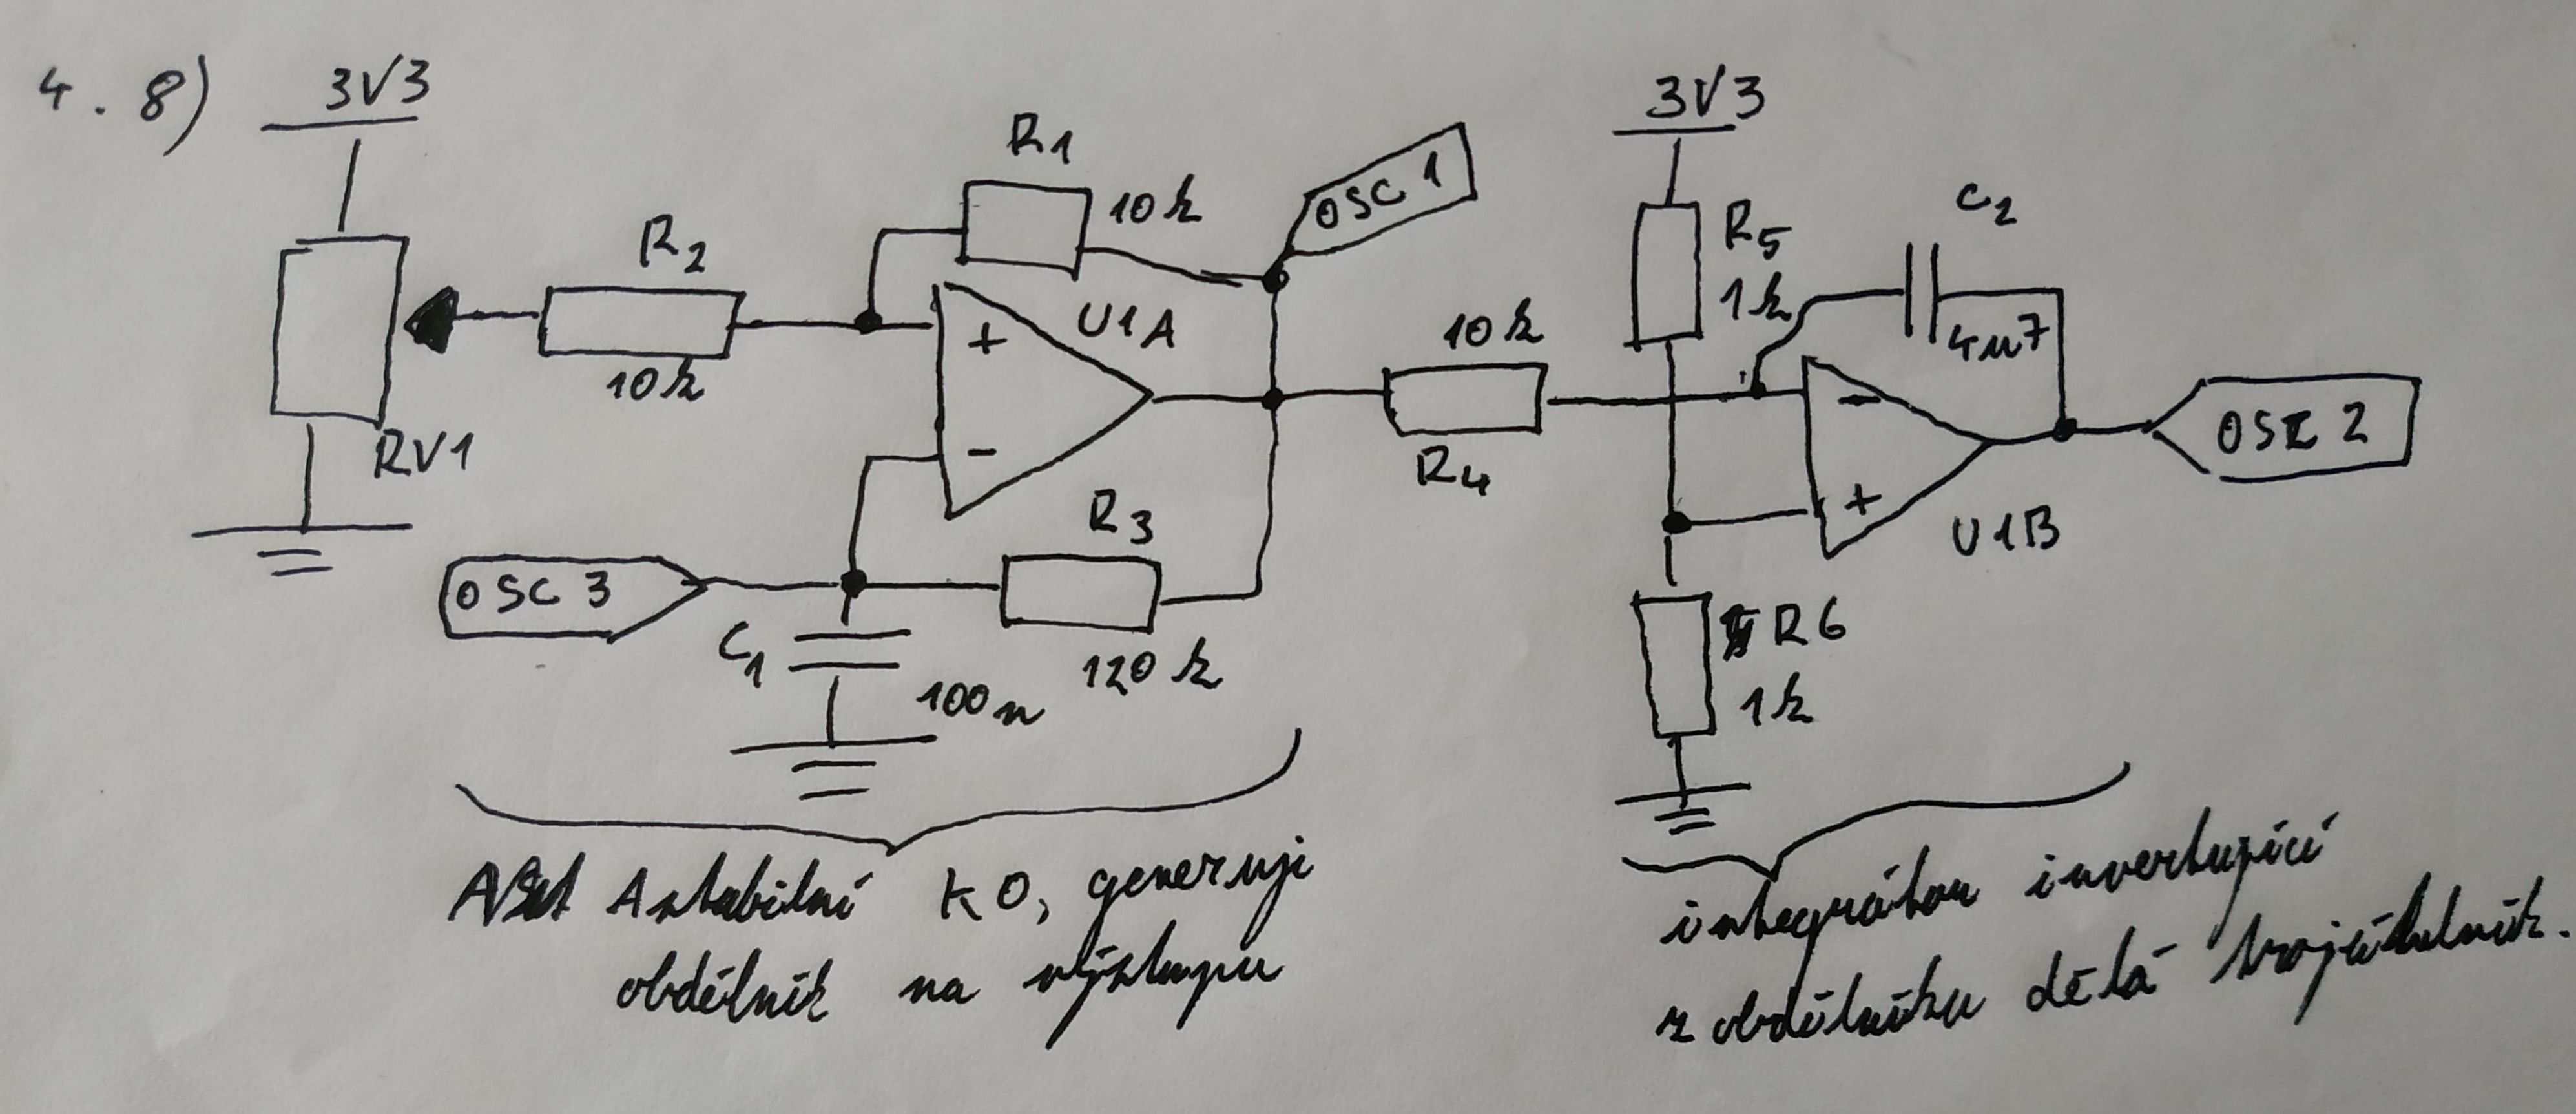 4. 8)
3V3
RV1
R2
10k
R1
10k
OSC 1
U1A
+
-
OSC 3
C1
100n
R3
120k
10k
R4
3V3
R5
1k
C2
4u7
-
+
U1B
OSC 2
R6
1k
Astabilní KO, generuji
obdélník na výstupu
integrátor invertující
z obdélníku dělá trojúhelník.